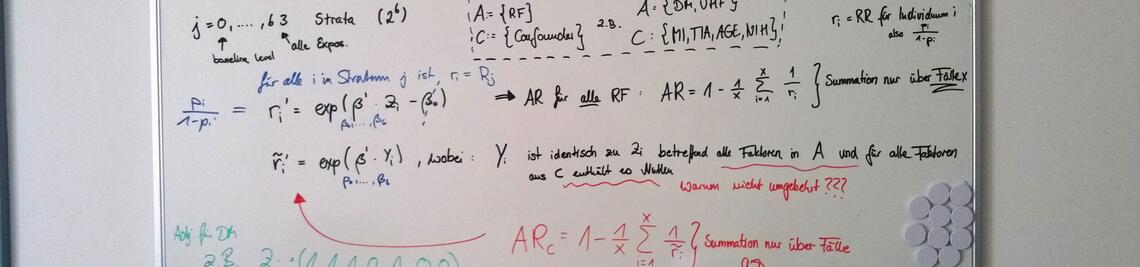 j = 0, ...., 63 Strata (2⁶)
baseline level
alle Expos.
A = {RF}
C := {Confounder}
z.B.
A = {DM, UHF}
C : {MI, TIA, AGE, NIH}
rᵢ = RR für Individuum i
also pᵢ/1-pᵢ
für alle i in Stratum j ist, rᵢ = Rⱼ
pᵢ/1-pᵢ = rᵢ' = exp(β' · Zᵢ - β₀)
β₀,...,β₆
⇒ AR für alle RF : AR = 1 - 1/x Σ (i=1, x) 1/rᵢ } Summation nur über Fälle x
r̃ᵢ' = exp(β' · Yᵢ), wobei : Yᵢ ist identisch zu Zᵢ betreffend alle Faktoren in A und für alle Faktoren
β₀,...,β₆
aus C enthält es Nullen
Warum nicht umgekehrt ???
Adj. für DM
AR_C = 1 - 1/x Σ (i=1, x) 1/r̃ᵢ } Summation nur über Fälle
z.B. Zᵢ = (1 1 1 0 1 0 0)